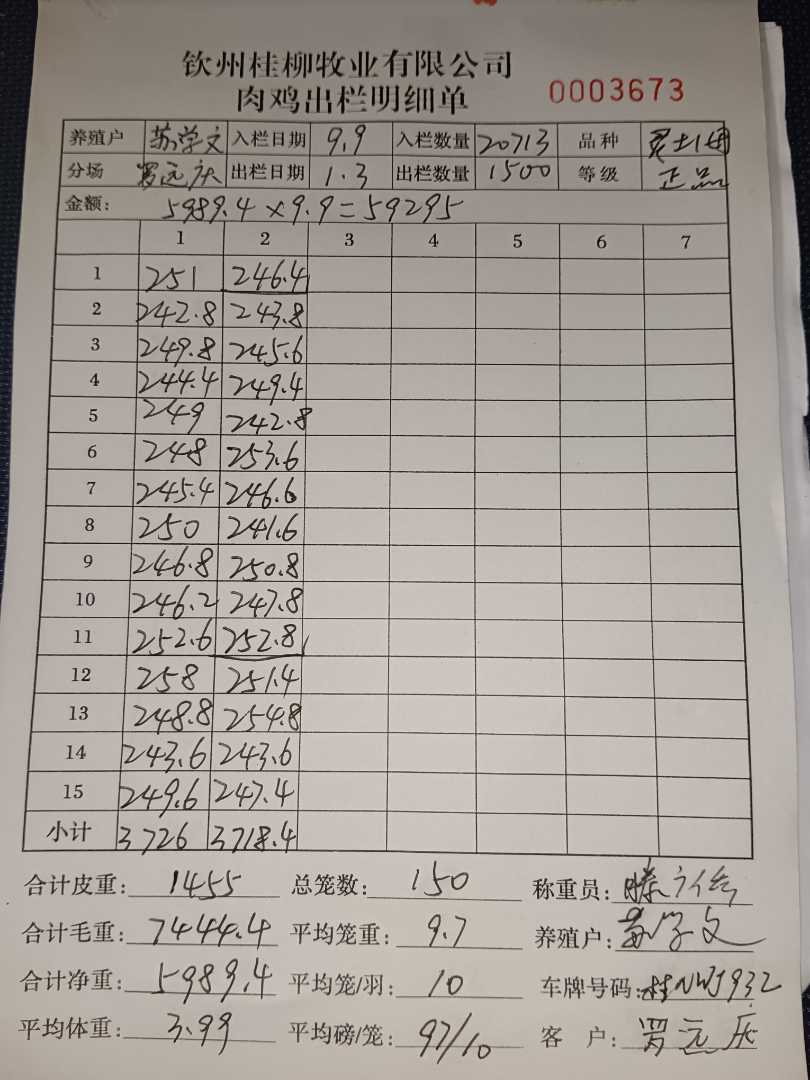 钦州桂柳牧业有限公司
肉鸡出栏明细单 0003673
养殖户 苏学文 入栏日期 9.9 入栏数量 20713 品种
分场 罗远庆 出栏日期 1.3 出栏数量 1500 等级 正品
金额: 5989.4×9.9=59295
1 2 3 4 5 6 7
1 251 246.4
2 242.8 243.8
3 249.8 245.6
4 244.4 249.4
5 249 242.8
6 248 253.6
7 245.4 246.6
8 250 241.6
9 246.8 250.8
10 246.2 247.8
11 252.6 252.8
12 258 251.4
13 248.8 254.8
14 243.6 243.6
15 249.6 247.4
小计 3726 3718.4
合计皮重: 1455 总笼数: 150 称重员:
合计毛重: 7444.4 平均笼重: 9.7 养殖户: 苏学文
合计净重: 5989.4 平均笼/羽: 10 车牌号码: 桂NWJ932
平均体重: 3.99 平均磅/笼: 97/10 客户: 罗远庆